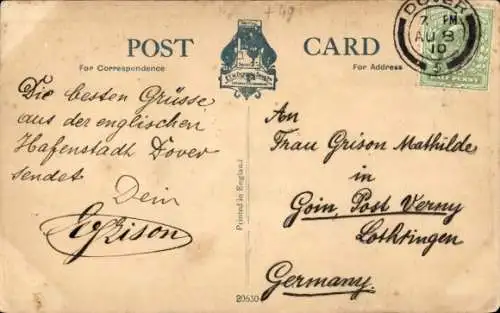 +49
POST CARD
For Correspondence
For Address
DOVER
7 PM
AU 8
10
HALF PENNY
Die besten Grüsse
aus der englischen
Hafenstadt Dover
sendet
Dein
Grison
An
Frau Grison Mathilde
in
Goin Post Verny
Lothringen
Germany.
Printed in England
20630